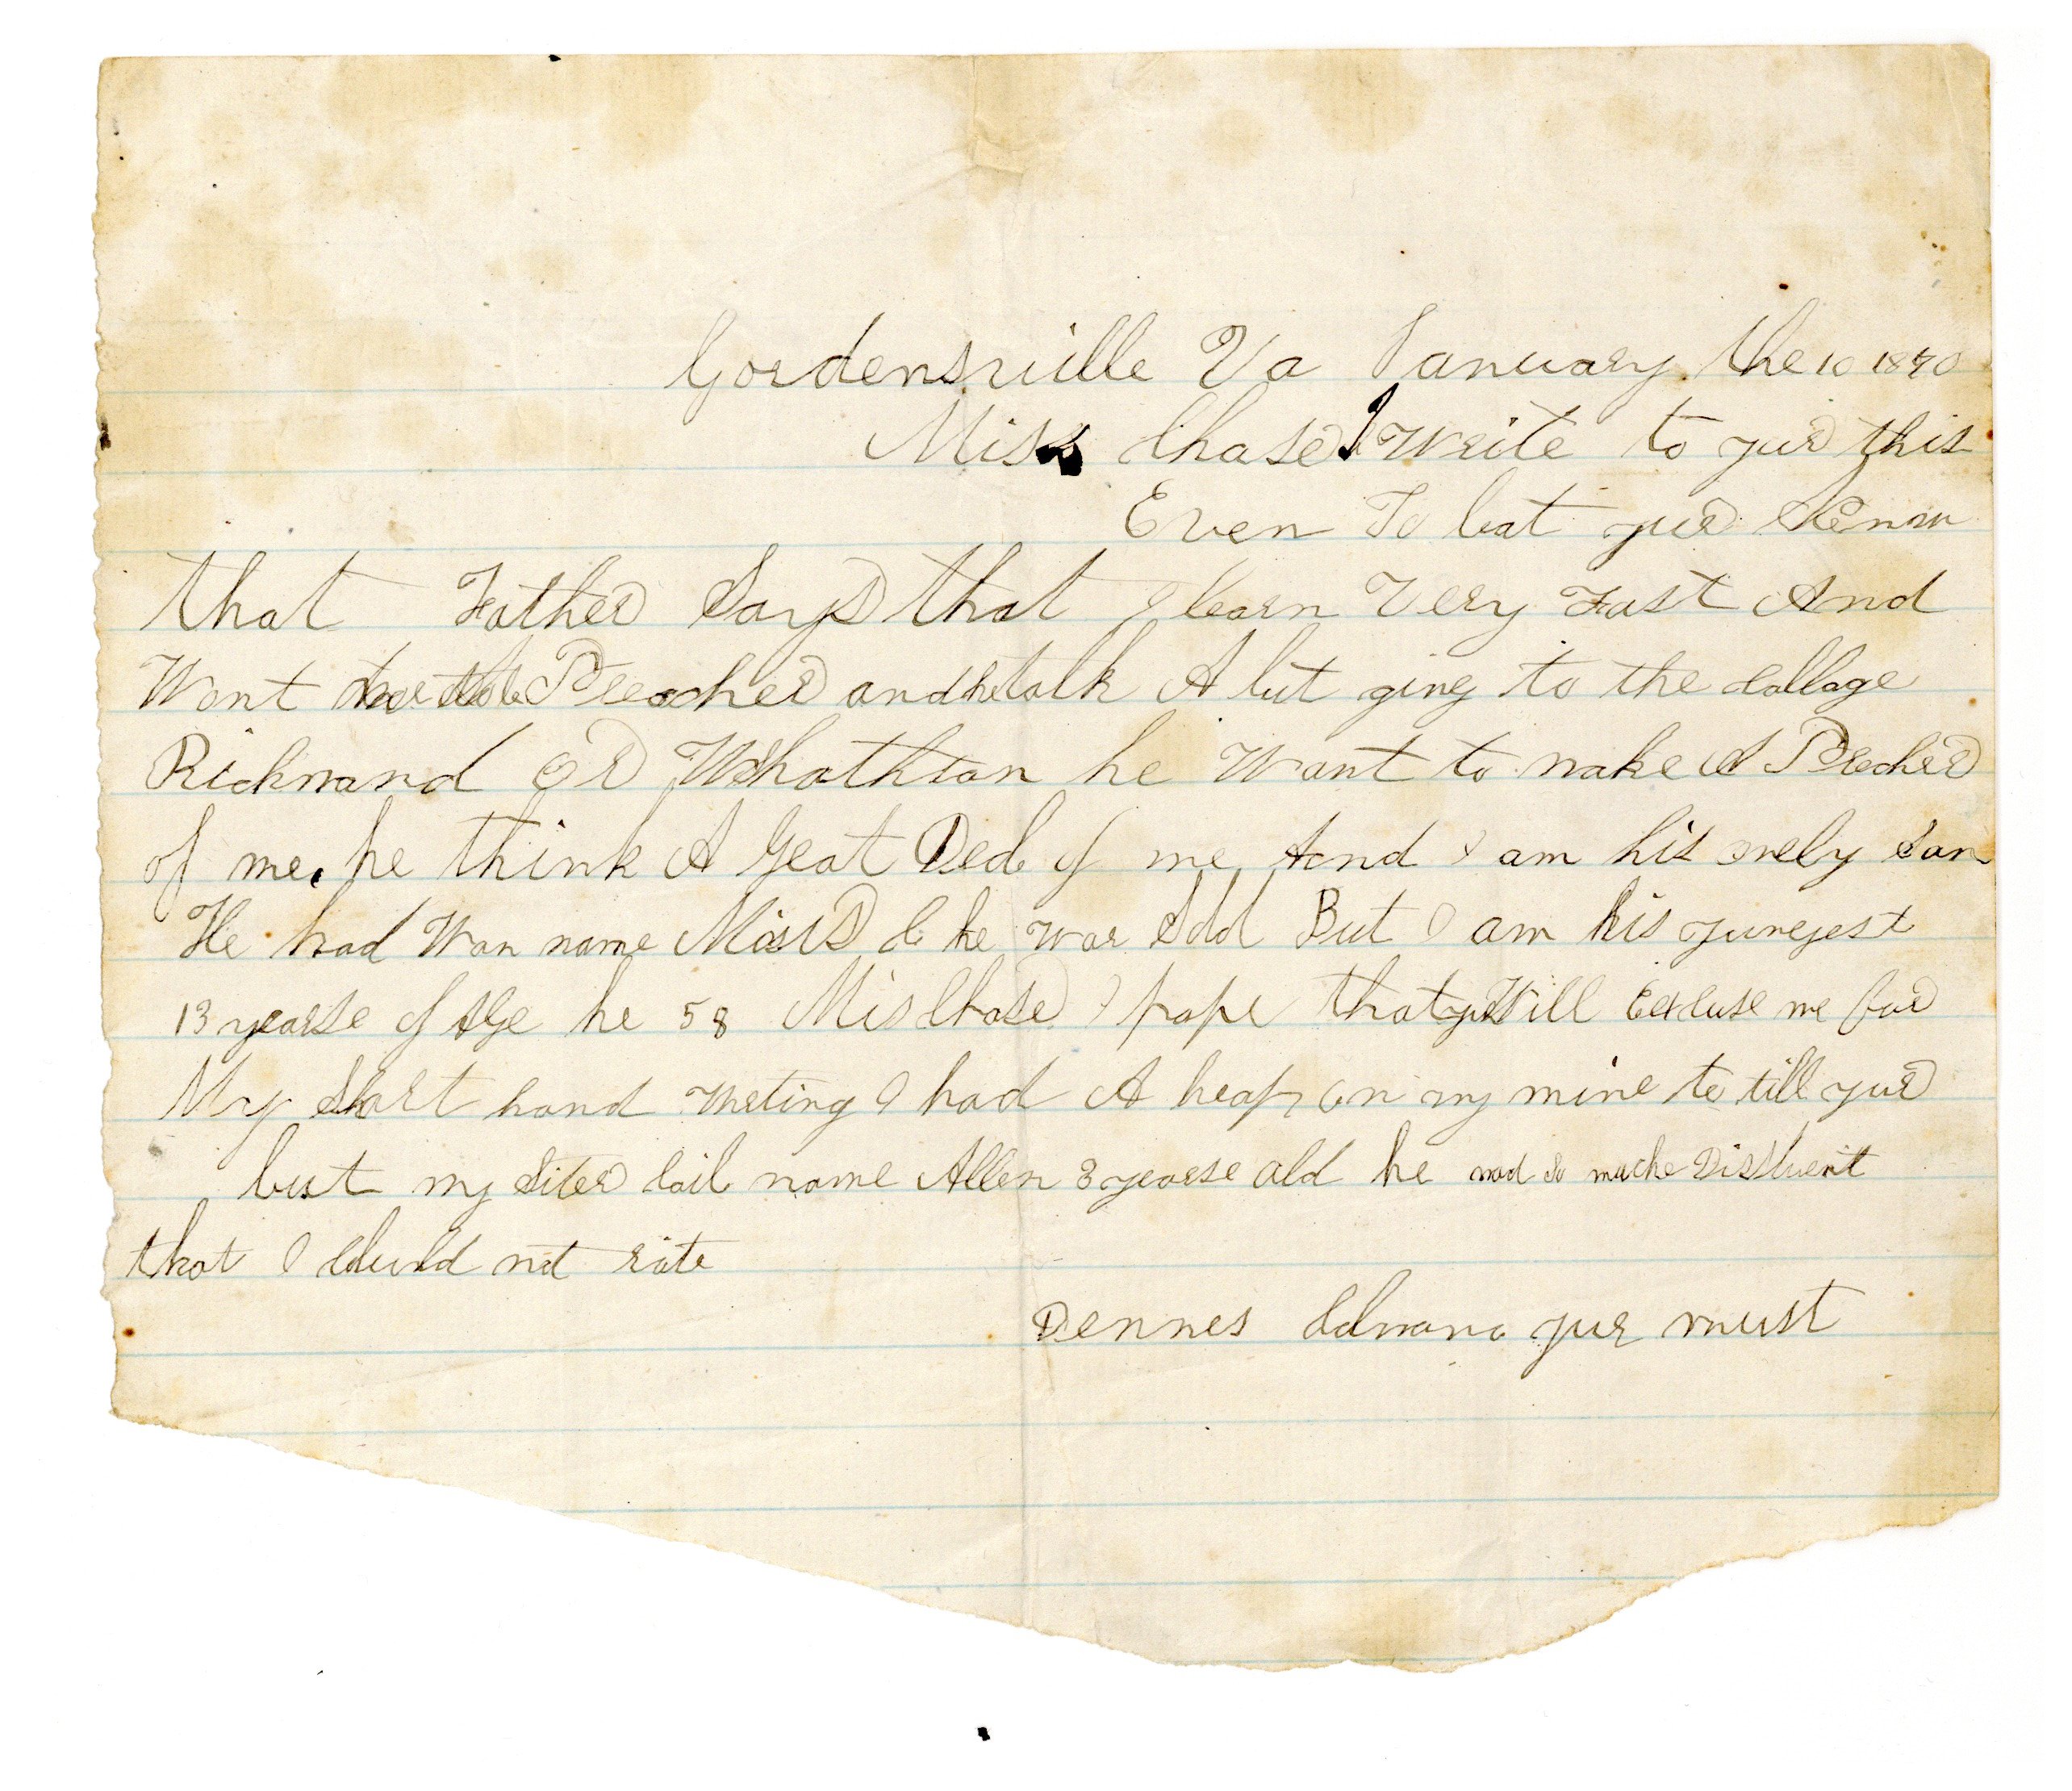 Gordensville Va January the 10 1870
Miss Chase I Write to yur this
Even To lat yur Know
that Father Says that I learn Very Fast And
Went the Preacher and he talk A but ging to the callage
Richmand Or Whathson he Want to make A Preacher
of me. he think A Geat Deel of me And I am his onely Son
He had Wan name Moses he war Sold But I am his yungest
13 yearse of Age he 58 Mis Chase I hope that yur Will Excuse me for
My Short hand Writing I had A heap on my mine to till yur
but my Siter name Allen 3 yearse old he mad so muche
that I Could not rite
Dennes yur must